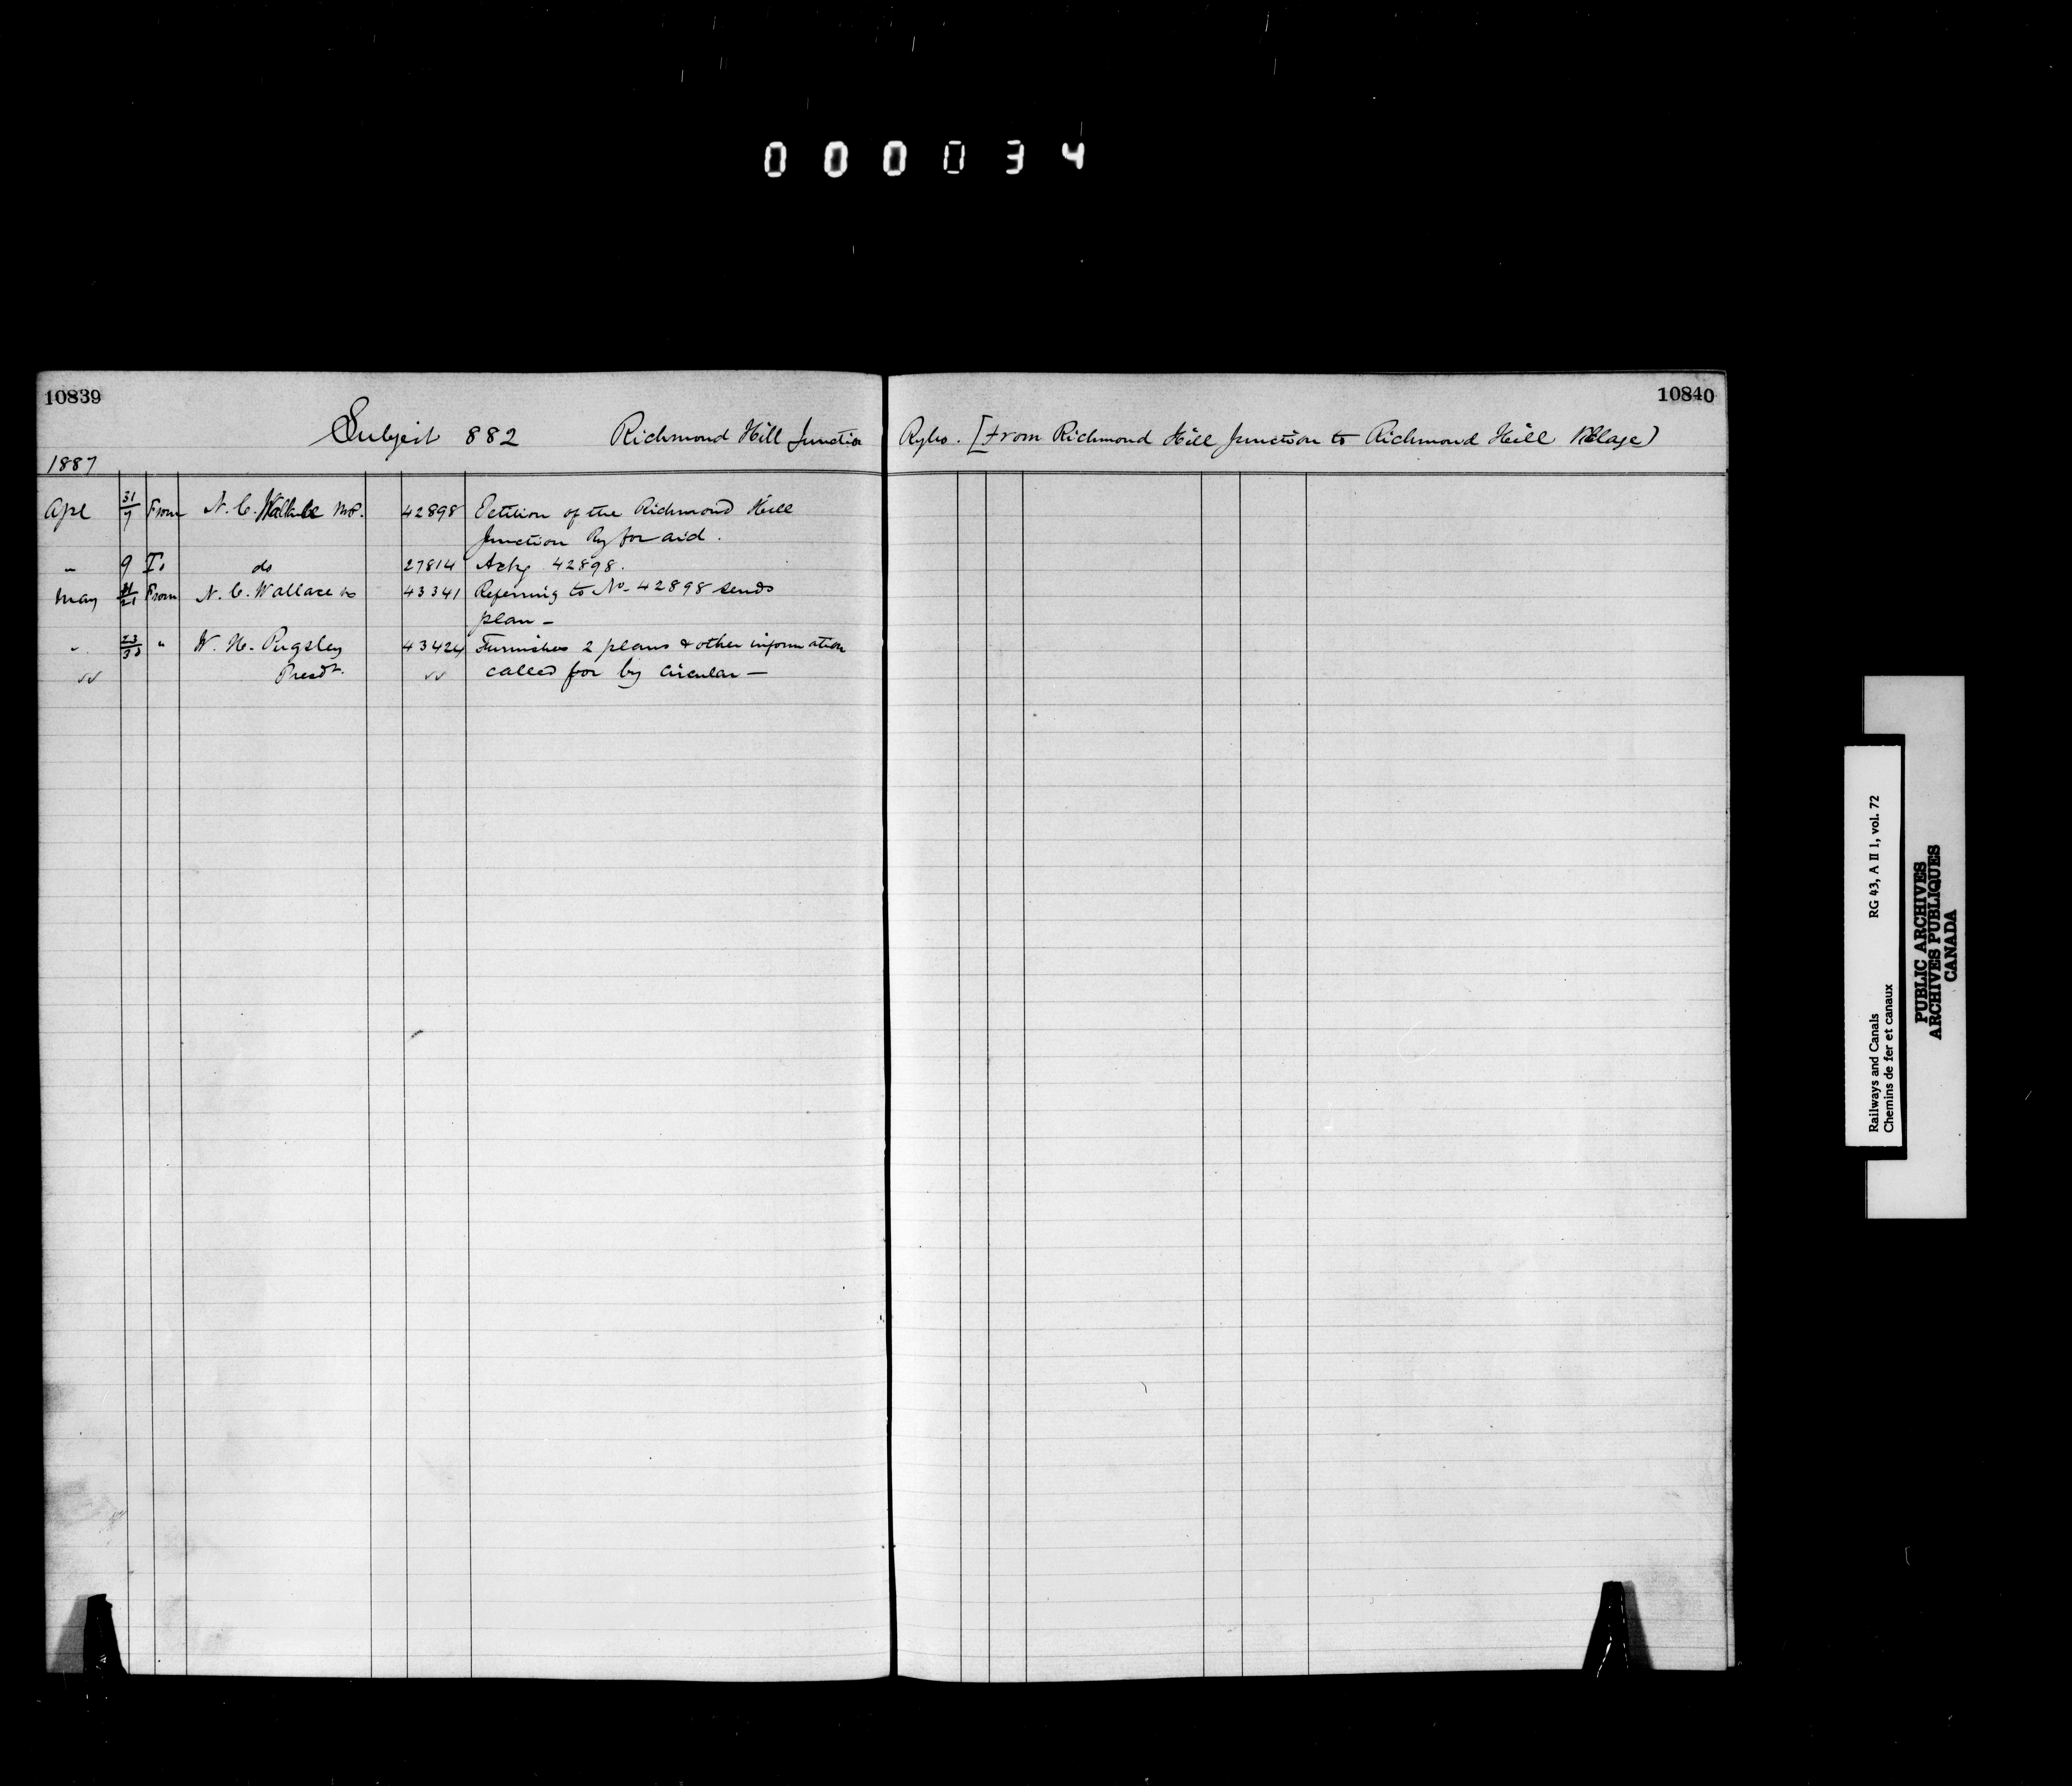 000034
10839
10840
Subject 882 Richmond Hill Junction Rylvo. [From Richmond Hill Junction to Richmond Hill Village)
1887
Apl 31/7 From N. C. Wallace M.P. 42898 Petition of the Richmond Hill
Junction Ry for aid.
" 9 To do 27814 Ackg 42898.
May 21 From N. C. Wallace 43341 Referring to No. 42898 sends
plan —
" 23/30 " W. H. Pugsley 43424 Furnishes 2 plans & other information
Presdt. called for by circular —
Railways and Canals RG 43, A II 1, vol. 72
Chemins de fer et canaux
PUBLIC ARCHIVES
ARCHIVES PUBLIQUES
CANADA